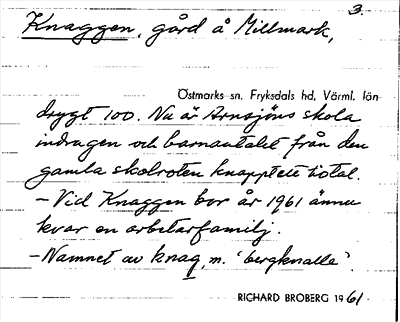 3.
Knaggen, gård å Millmark,
Östmarks sn. Fryksdals hd, Värml. län
drygt 100. Nu är Arnsjöns skola
indragen och barnantalet från den
gamla skolroten knappt ett tiotal.
– Vid Knaggen bor år 1961 ännu
kvar en arbetarfamilj.
– Namnet av knag, m. 'bergknalle'.
RICHARD BROBERG 1961